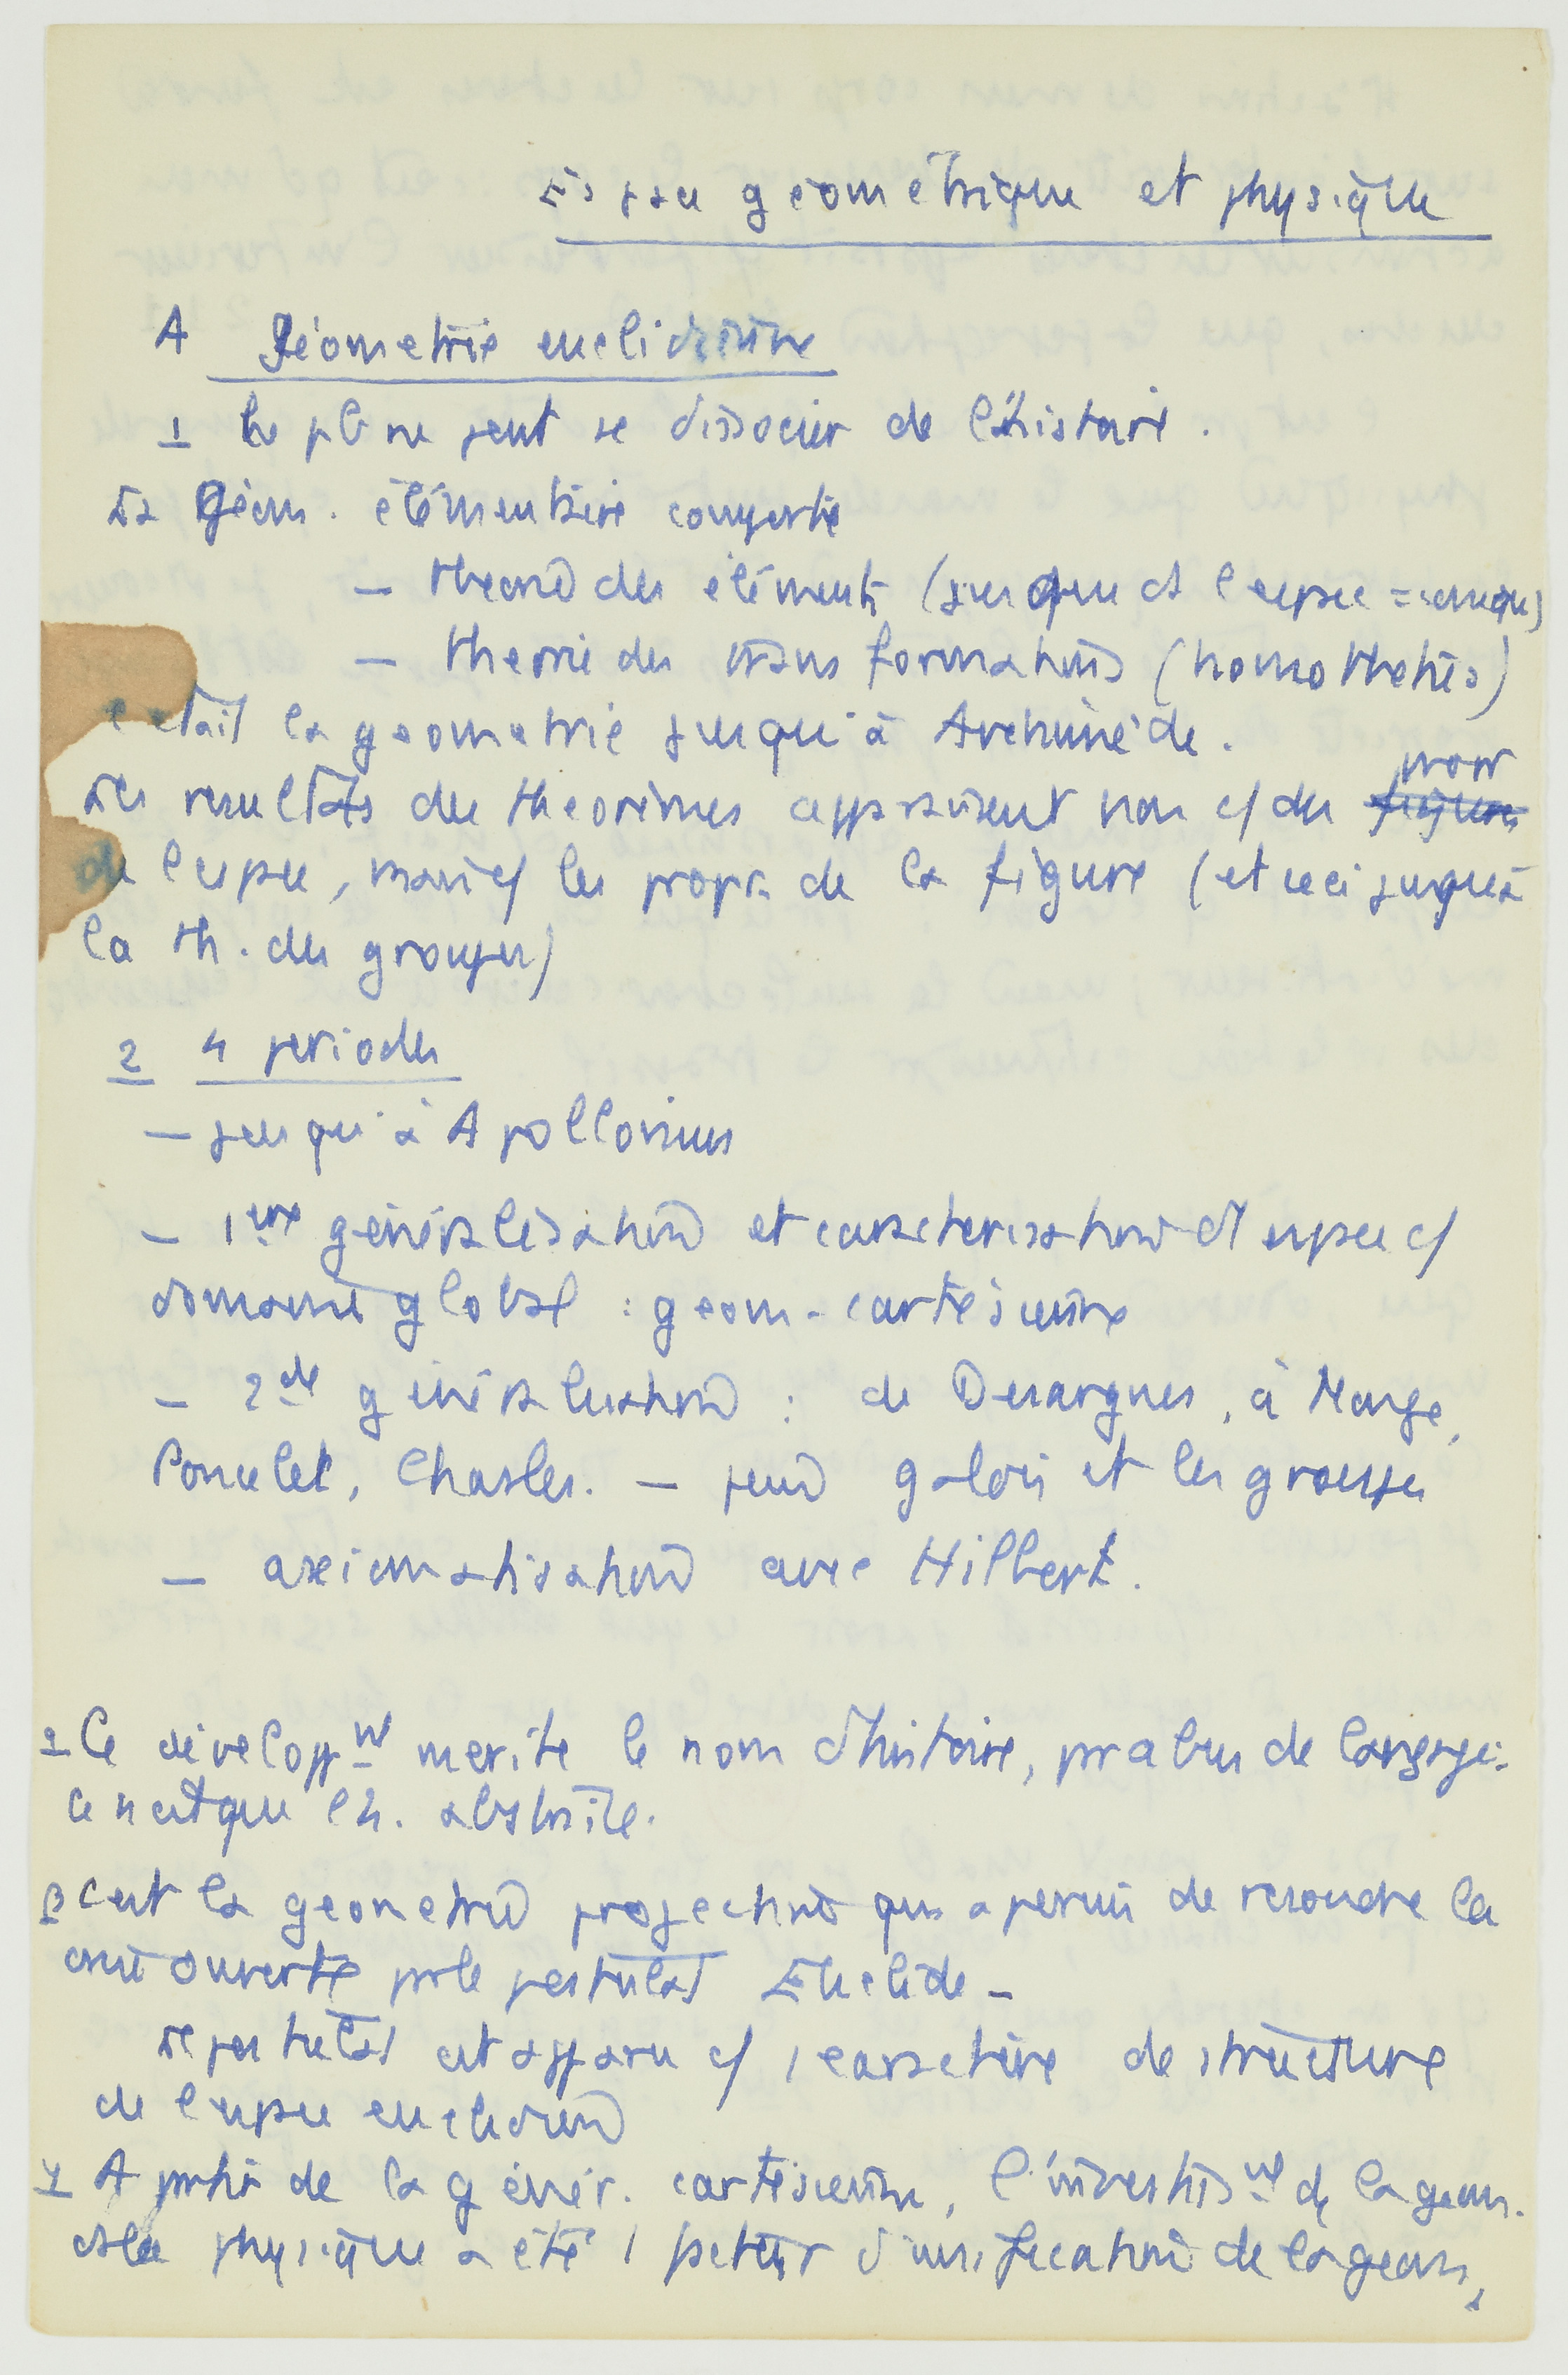 Espace géométrique et physique
A Géométrie euclidienne
1 La φ ne peut se dissocier de l'histoire.
La Géom. élémentaire comporte
— theorie des éléments (jusque et l'espace = coniques)
— theorie des transformations (homotheties)
C'etait la geometrie jusqu'à Archimède.
Les resultats des theorèmes apparaissent non c/ des propr
de l'espace, mais c/ les propr. de la figure (et ceci jusqu'à
la th. des groupes)
2 4 periodes
— jusqu'à Apollonius
— 1ere généralisation et caracterisation d'1 espace c/
domaine global : geom. cartésienne
— 2de généralisation : de Desargues, à Monge,
Poncelet, Chasles. — puis Galois et les groupes
— axiomatisation avec Hilbert.
α Ce développnt merite le nom d'histoire, pr abus de langage :
ce n'est que l'h. abstraite.
β C'est la geometrie projective qui a permis de resoudre la
crise ouverte pr le postulat Euclide —
Le postulat est apparu c/ 1 caractère de structure
de l'espace euclidien
γ A partir de la génér. cartésienne, l'investisnt de la geom.
ds la physique a été 1 facteur d'unification de la geom,